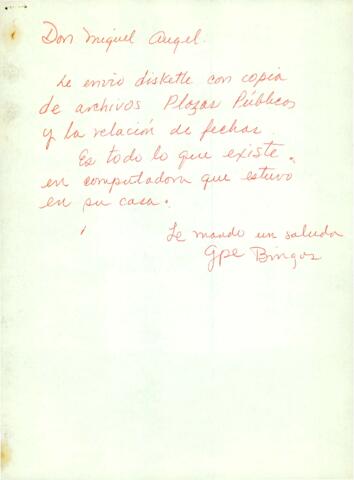 Don Miguel Angel.
Le envio diskette con copia
de archivos Plazas Públicas
y la relación de fechas.
Es todo lo que existe.
en computadora que estuvo
en su casa.
Le mando un saludo
Gpe